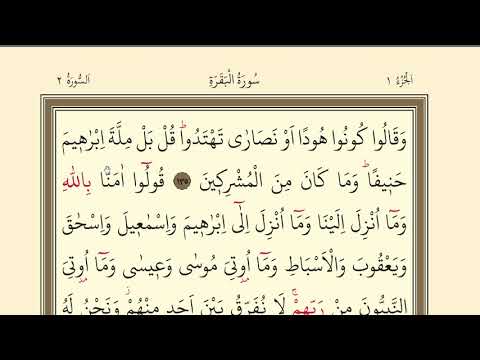 اَلْجُزْءُ ١ سُورَةُ الْبَقَرَةِ اَلسُّورَةُ ٢
وَقَالُوا كُونُوا هُودًا اَوْ نَصَارٰى تَهْتَدُواۜ قُلْ بَلْ مِلَّةَ اِبْرٰه۪يمَ
حَن۪يفًاۜ وَمَا كَانَ مِنَ الْمُشْرِك۪ينَ ﴿١٣٥﴾ قُولُٓوا اٰمَنَّا بِاللّٰهِ
وَمَٓا اُنْزِلَ اِلَيْنَا وَمَٓا اُنْزِلَ اِلٰٓى اِبْرٰه۪يمَ وَاِسْمٰع۪يلَ وَاِسْحٰقَ
وَيَعْقُوبَ وَالْاَسْبَاطِ وَمَٓا اُو۫تِيَ مُوسٰى وَع۪يسٰى وَمَٓا اُو۫تِيَ
النَّبِيُّونَ مِنْ رَبِّهِمْۚ لَا نُفَرِّقُ بَيْنَ اَحَدٍ مِنْهُمْۘ وَنَحْنُ لَهُ